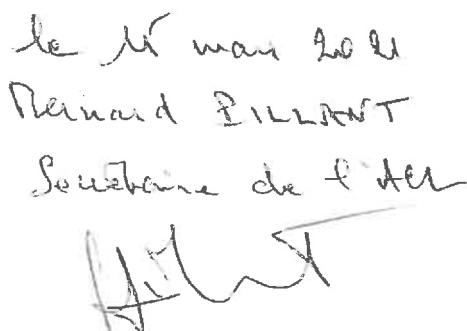 le 15 mars 2021
Bernard BILLANT
Secrétaire de l'ACL